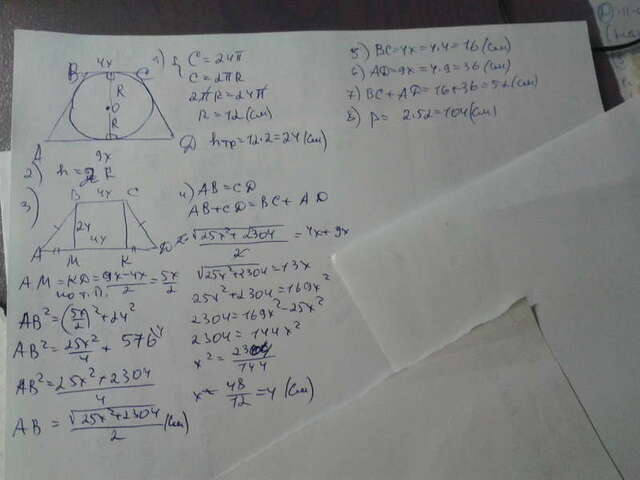 1) { C = 24π
C = 2πR
2πR = 24π
R = 12 (см)
hтр = 12·2 = 24 (см)
B 4x C
R
O
R
A 9x D
2) h = 2R
3) B 4x C
24
4x
A M K D
AM = KD = 9x-4x/2 = 5x/2
по т. П.
AB² = (5x/2)² + 24²
AB² = 25x²/4 + 576
AB² = 25x² + 2304/4
AB = √25x²+2304/2 (см)
4) AB = CD
AB + CD = BC + AD
2·√25x²+2304/2 = 4x + 9x
√25x²+2304 = 13x
25x² + 2304 = 169x²
2304 = 169x² - 25x²
2304 = 144x²
x² = 2304/144
x = 48/12 = 4 (см)
5) BC = 4x = 4·4 = 16 (см)
6) AD = 9x = 4·9 = 36 (см)
7) BC + AD = 16 + 36 = 52 (см)
8) p = 2·52 = 104 (см)